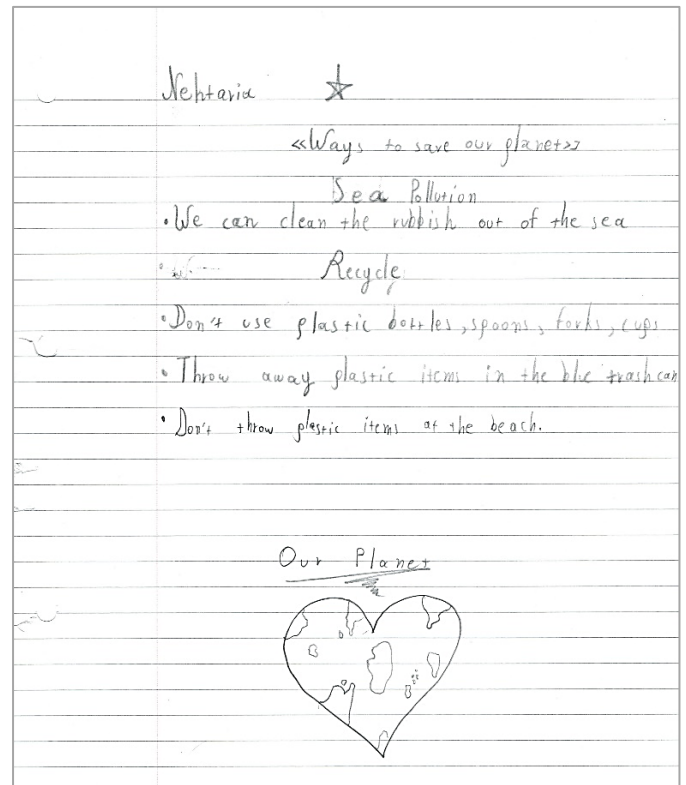 Nektaria
«Ways to save our planet»
Sea Pollution
•We can clean the rubbish out of the sea
Recycle
•Don't use plastic bottles, spoons, forks, cups
•Throw away plastic items in the blue trash can
•Don't throw plastic items at the beach.
Our Planet